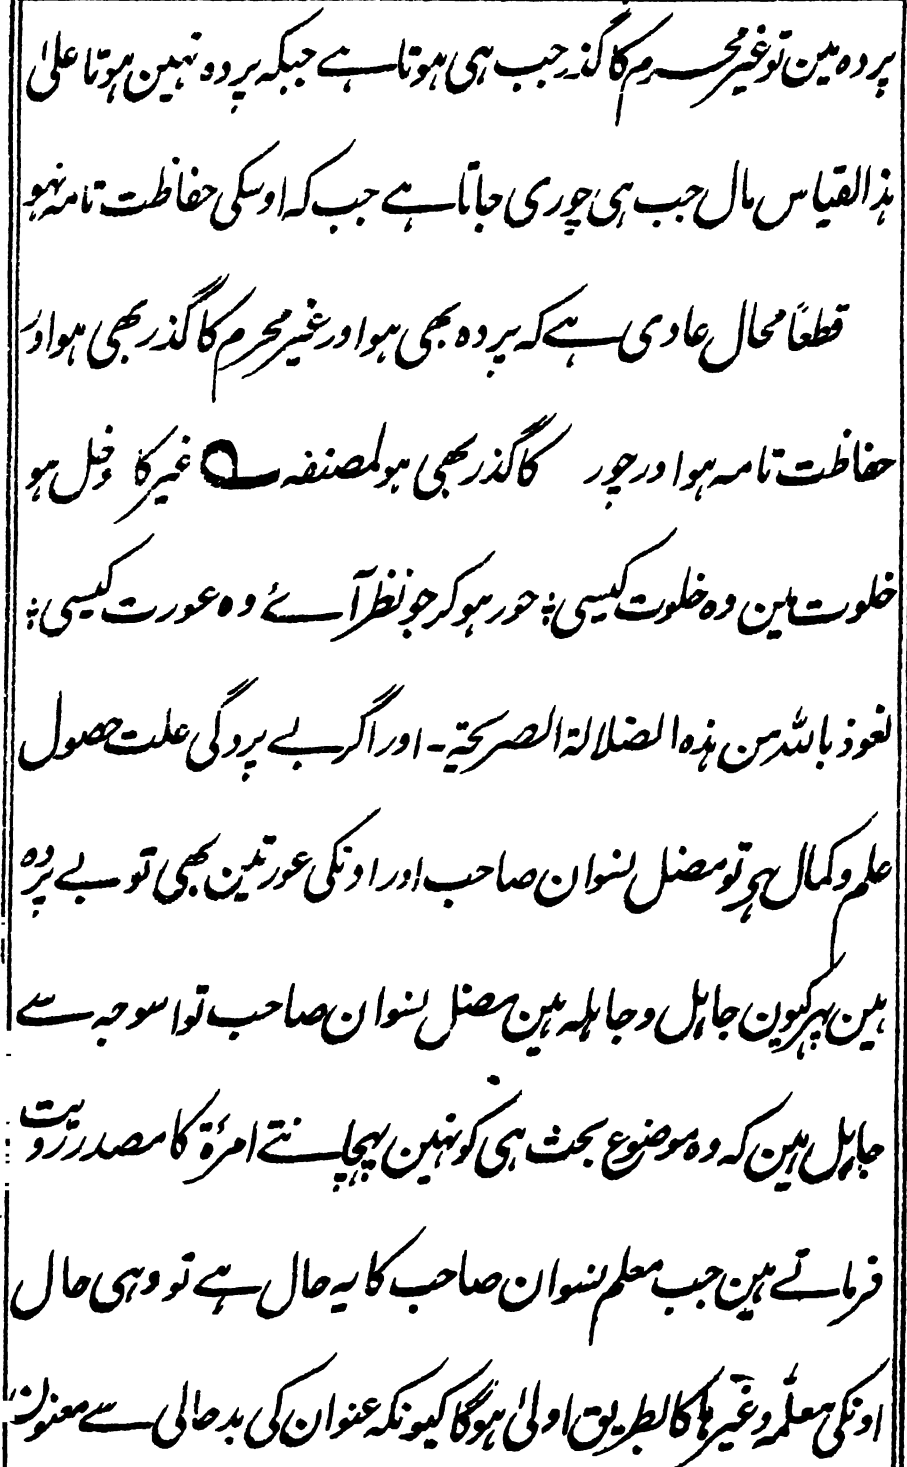 پردہ مین تو غیر محرم کا گذر جب ہی ہوتا ہے جبکہ پردہ نہین ہوتا علیٰ
ہذا القیاس مال جب ہی چوری جاتا ہے جب کہ اوسکی حفاظت تامہ نہو
قطعاً محال عادی ہے کہ پردہ بھی ہو اور غیر محرم کا گذر بھی ہو اور
حفاظت تامہ ہو اور چور کا گذر بھی ہو لمصنفہ غیر کا دخل ہو
خلوت مین وہ خلوت کیسی ؛ حور ہو کر جو نظر آئے وہ عورت کیسی ؛
نعوذ باللہ من ہذہ الضلالۃ الصریحۃ - اور اگر بے پردگی علت حصول
علم و کمال ہی تو مضل نسوان صاحب اور اونکی عورتین بھی تو بے پردہ
ہین پہر کیون جاہل و جاہلہ ہین مضل نسوان صاحب تو اسوجہ سے
جاہل ہین کہ وہ موضوع بحث ہی کو نہین پہچانتے امرۃ کا مصدر رویت
فرماتے ہین جب معلم نسوان صاحب کا یہ حال ہے تو وہی حال
اونکی معلّمہ و غیرہا کا بطریق اولیٰ ہوگا کیونکہ عنوان کی بدحالی سے معنون